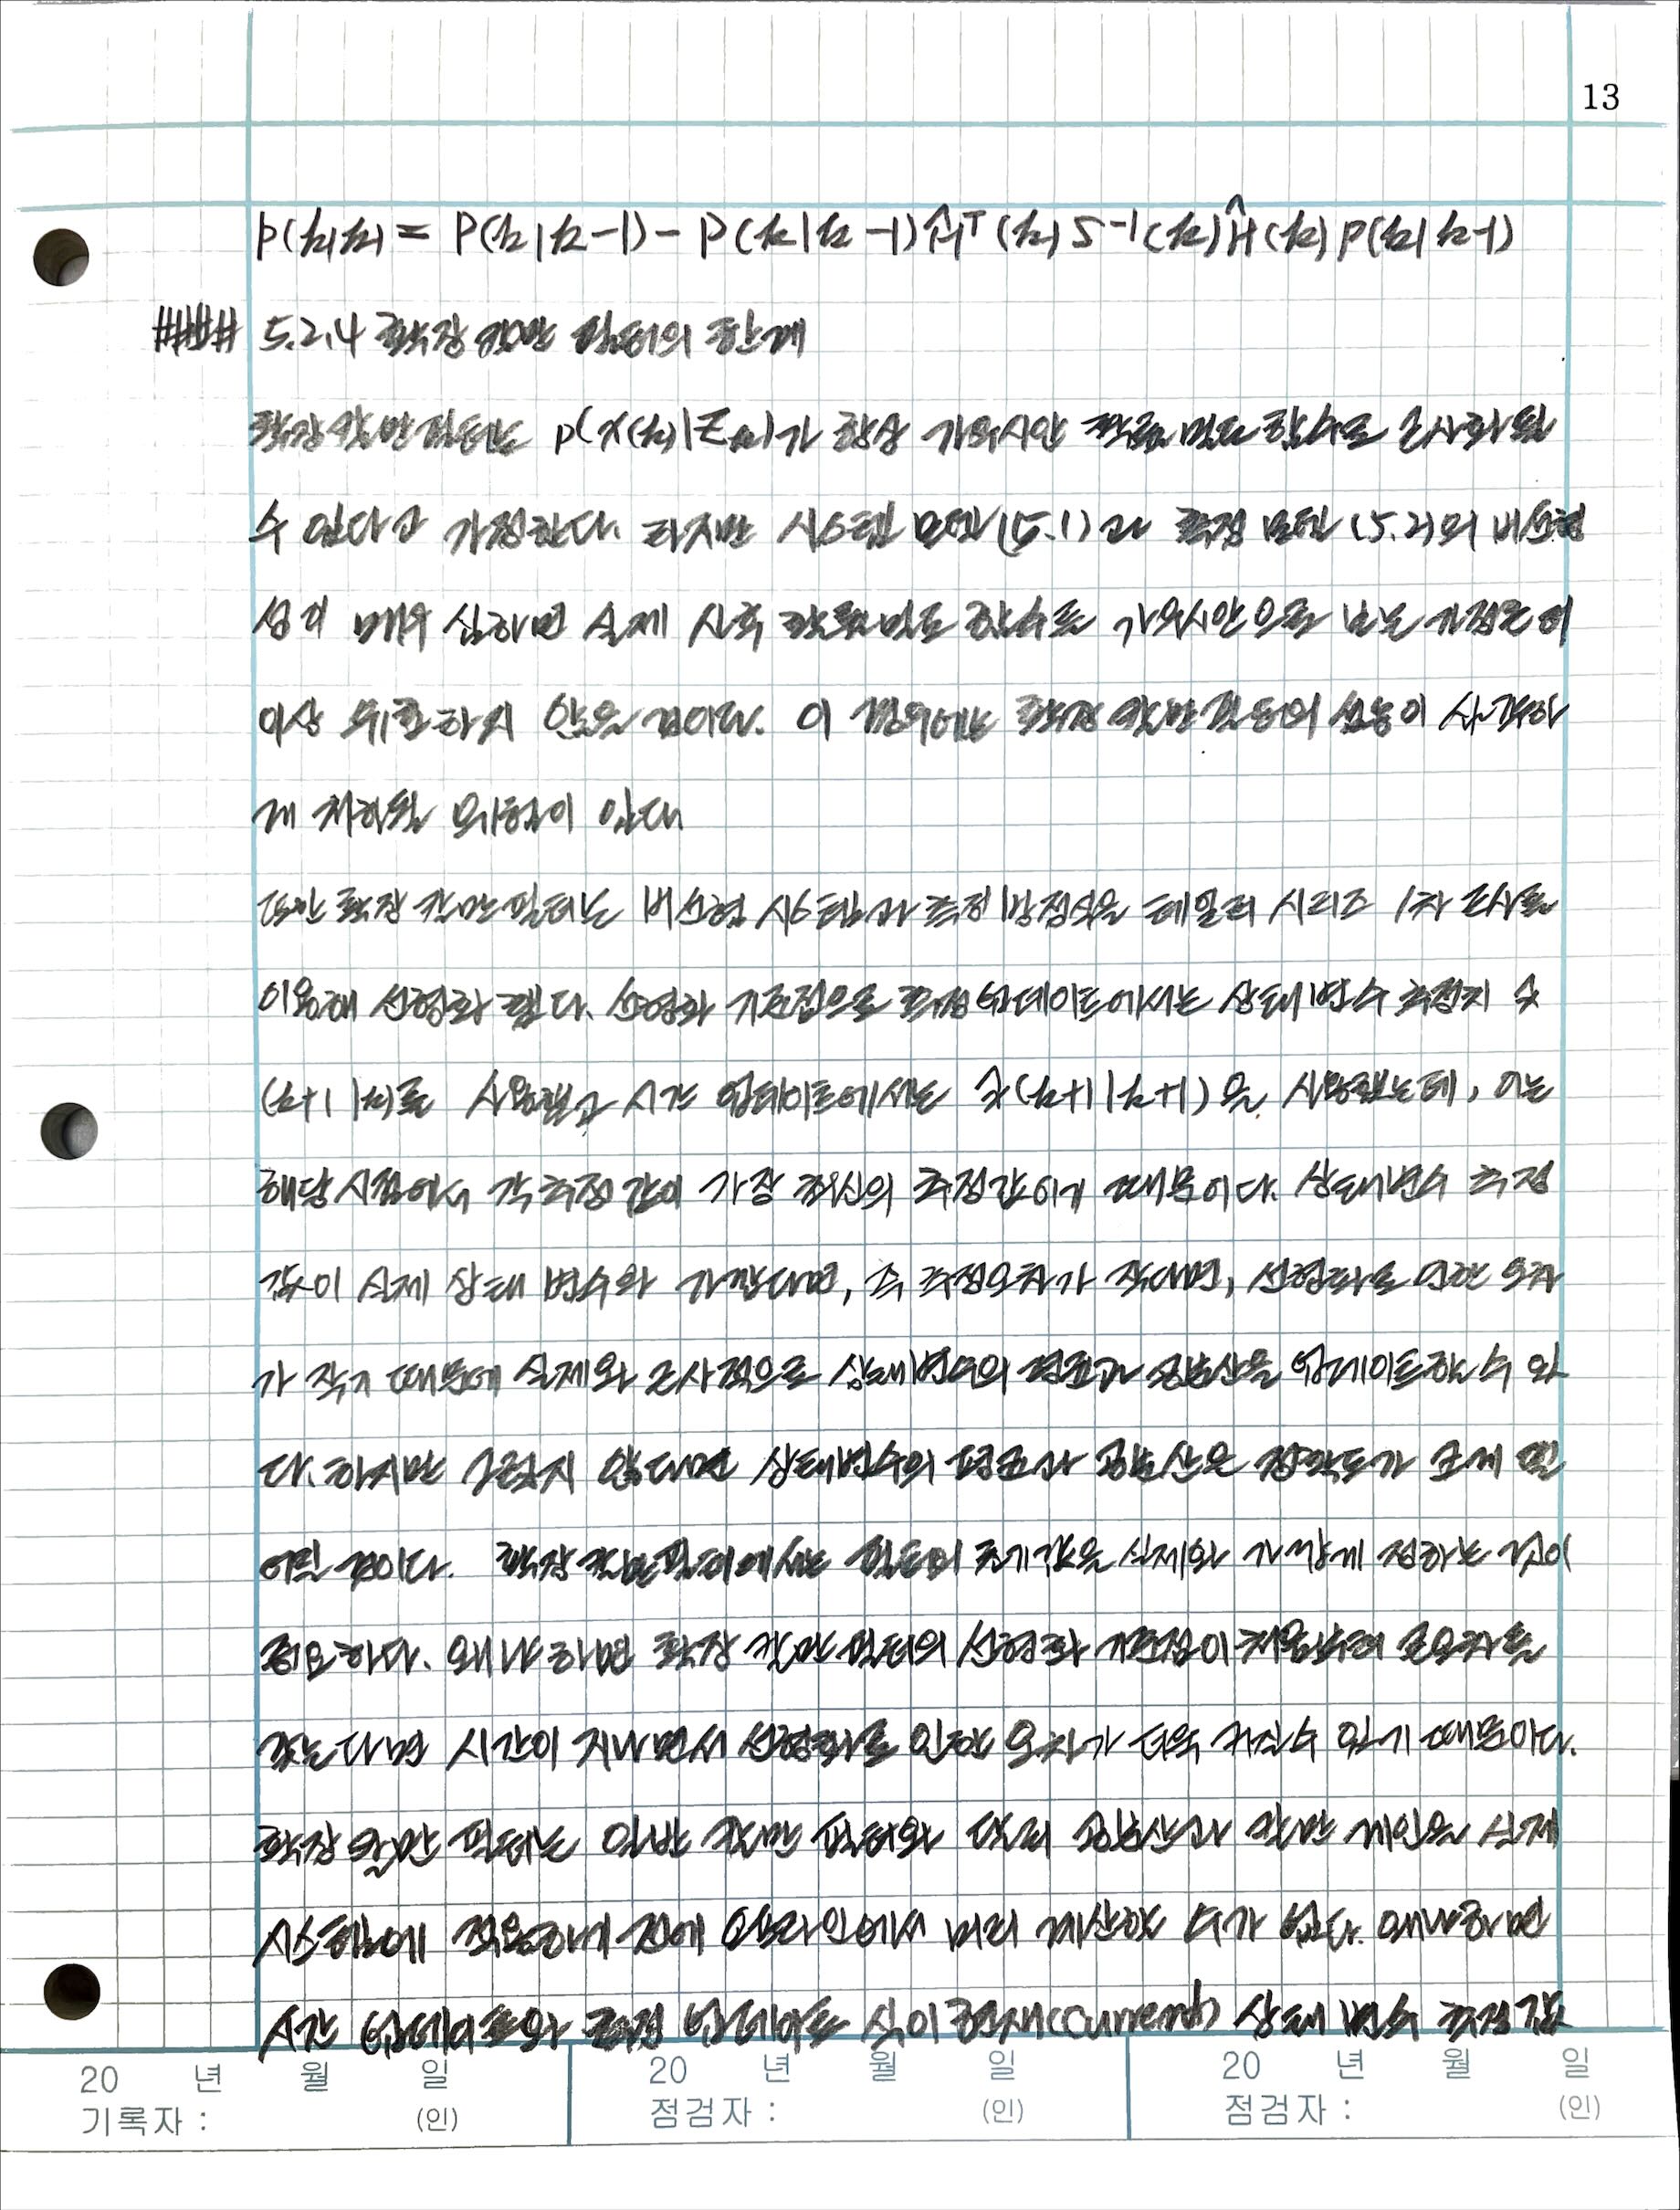 13
P(k|k) = P(k|k-1) - P(k|k-1)Ĥᵀ(k)S⁻¹(k)Ĥ(k)P(k|k-1)
#### 5.2.4 확장 칼만 필터의 한계
확장 칼만 필터는 p(x(k)|Zₖ)가 항상 가우시안 확률 밀도 함수로 근사화될
수 있다고 가정한다. 하지만 시스템 모델(5.1)과 측정 모델 (5.2)의 비선형
성이 매우 심하면 실제 사후 확률밀도 함수를 가우시안으로 보는 가정은 더
이상 유효하지 않을 것이다. 이 경우에는 확장 칼만 필터의 성능이 심각하
게 저하될 위험이 있다
또한 확장 칼만 필터는 비선형 시스템과 측정 방정식을 테일러 시리즈 1차 근사를
이용해 선형화 했다. 선형화 기준점으로 측정 업데이트에서는 상태변수 추정치 x̂
(k+1|k)를 사용했고 시간 업데이트에서는 x̂(k+1|k+1)을 사용했는데, 이는
해당 시점에서 각 추정 값이 가장 최신의 추정값이기 때문이다. 상태변수 추정
값이 실제 상태 변수와 가깝다면, 즉 추정오차가 작다면, 선형화로 인한 오차
가 작기 때문에 실제와 근사적으로 상태변수의 평균과 공분산을 업데이트할 수 있
다. 하지만 그렇지 않다면 상태변수의 평균과 공분산은 정확도가 크게 떨
어질 것이다. 확장 칼만 필터에서는 필터의 초기값을 실제와 가깝게 정하는 것이
중요하다. 왜냐하면 확장 칼만 필터의 선형화 기준점이 처음부터 큰 오차를
갖는다면 시간이 지나면서 선형화로 인한 오차가 더욱 커질수 있기 때문이다.
확장 칼만 필터는 일반 칼만 필터와 달리 공분산과 칼만 게인을 실제
시스템에 적용하기 전에 오프라인에서 미리 계산할 수가 없다. 왜냐하면
시간 업데이트와 측정 업데이트 식이 현재(current) 상태 변수 추정값
20 년 월 일
기록자 : (인)
20 년 월 일
점검자 : (인)
20 년 월 일
점검자 : (인)